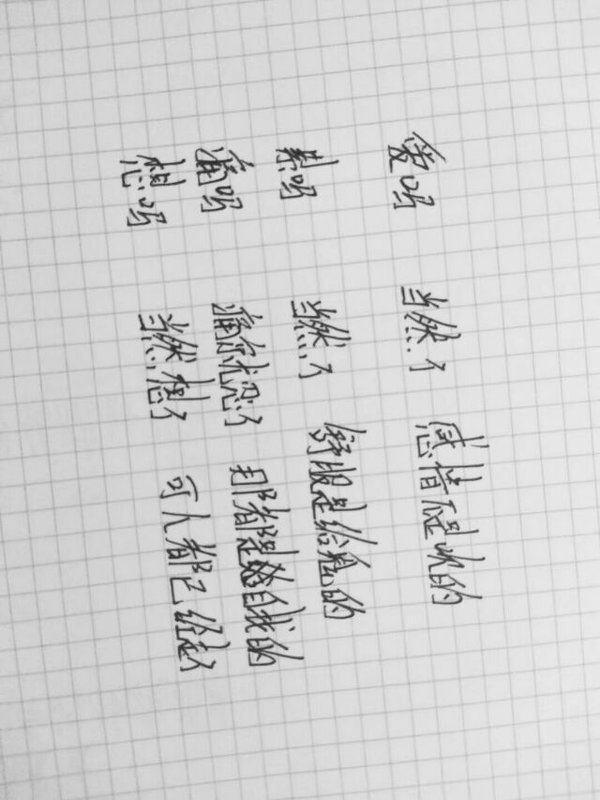 爱吗 当然了 感情不是吹的
吗 当然了 舒服是给的
痛吗 痛你忍了 那都是自找的
想吗 当然想了 可人都已经走了